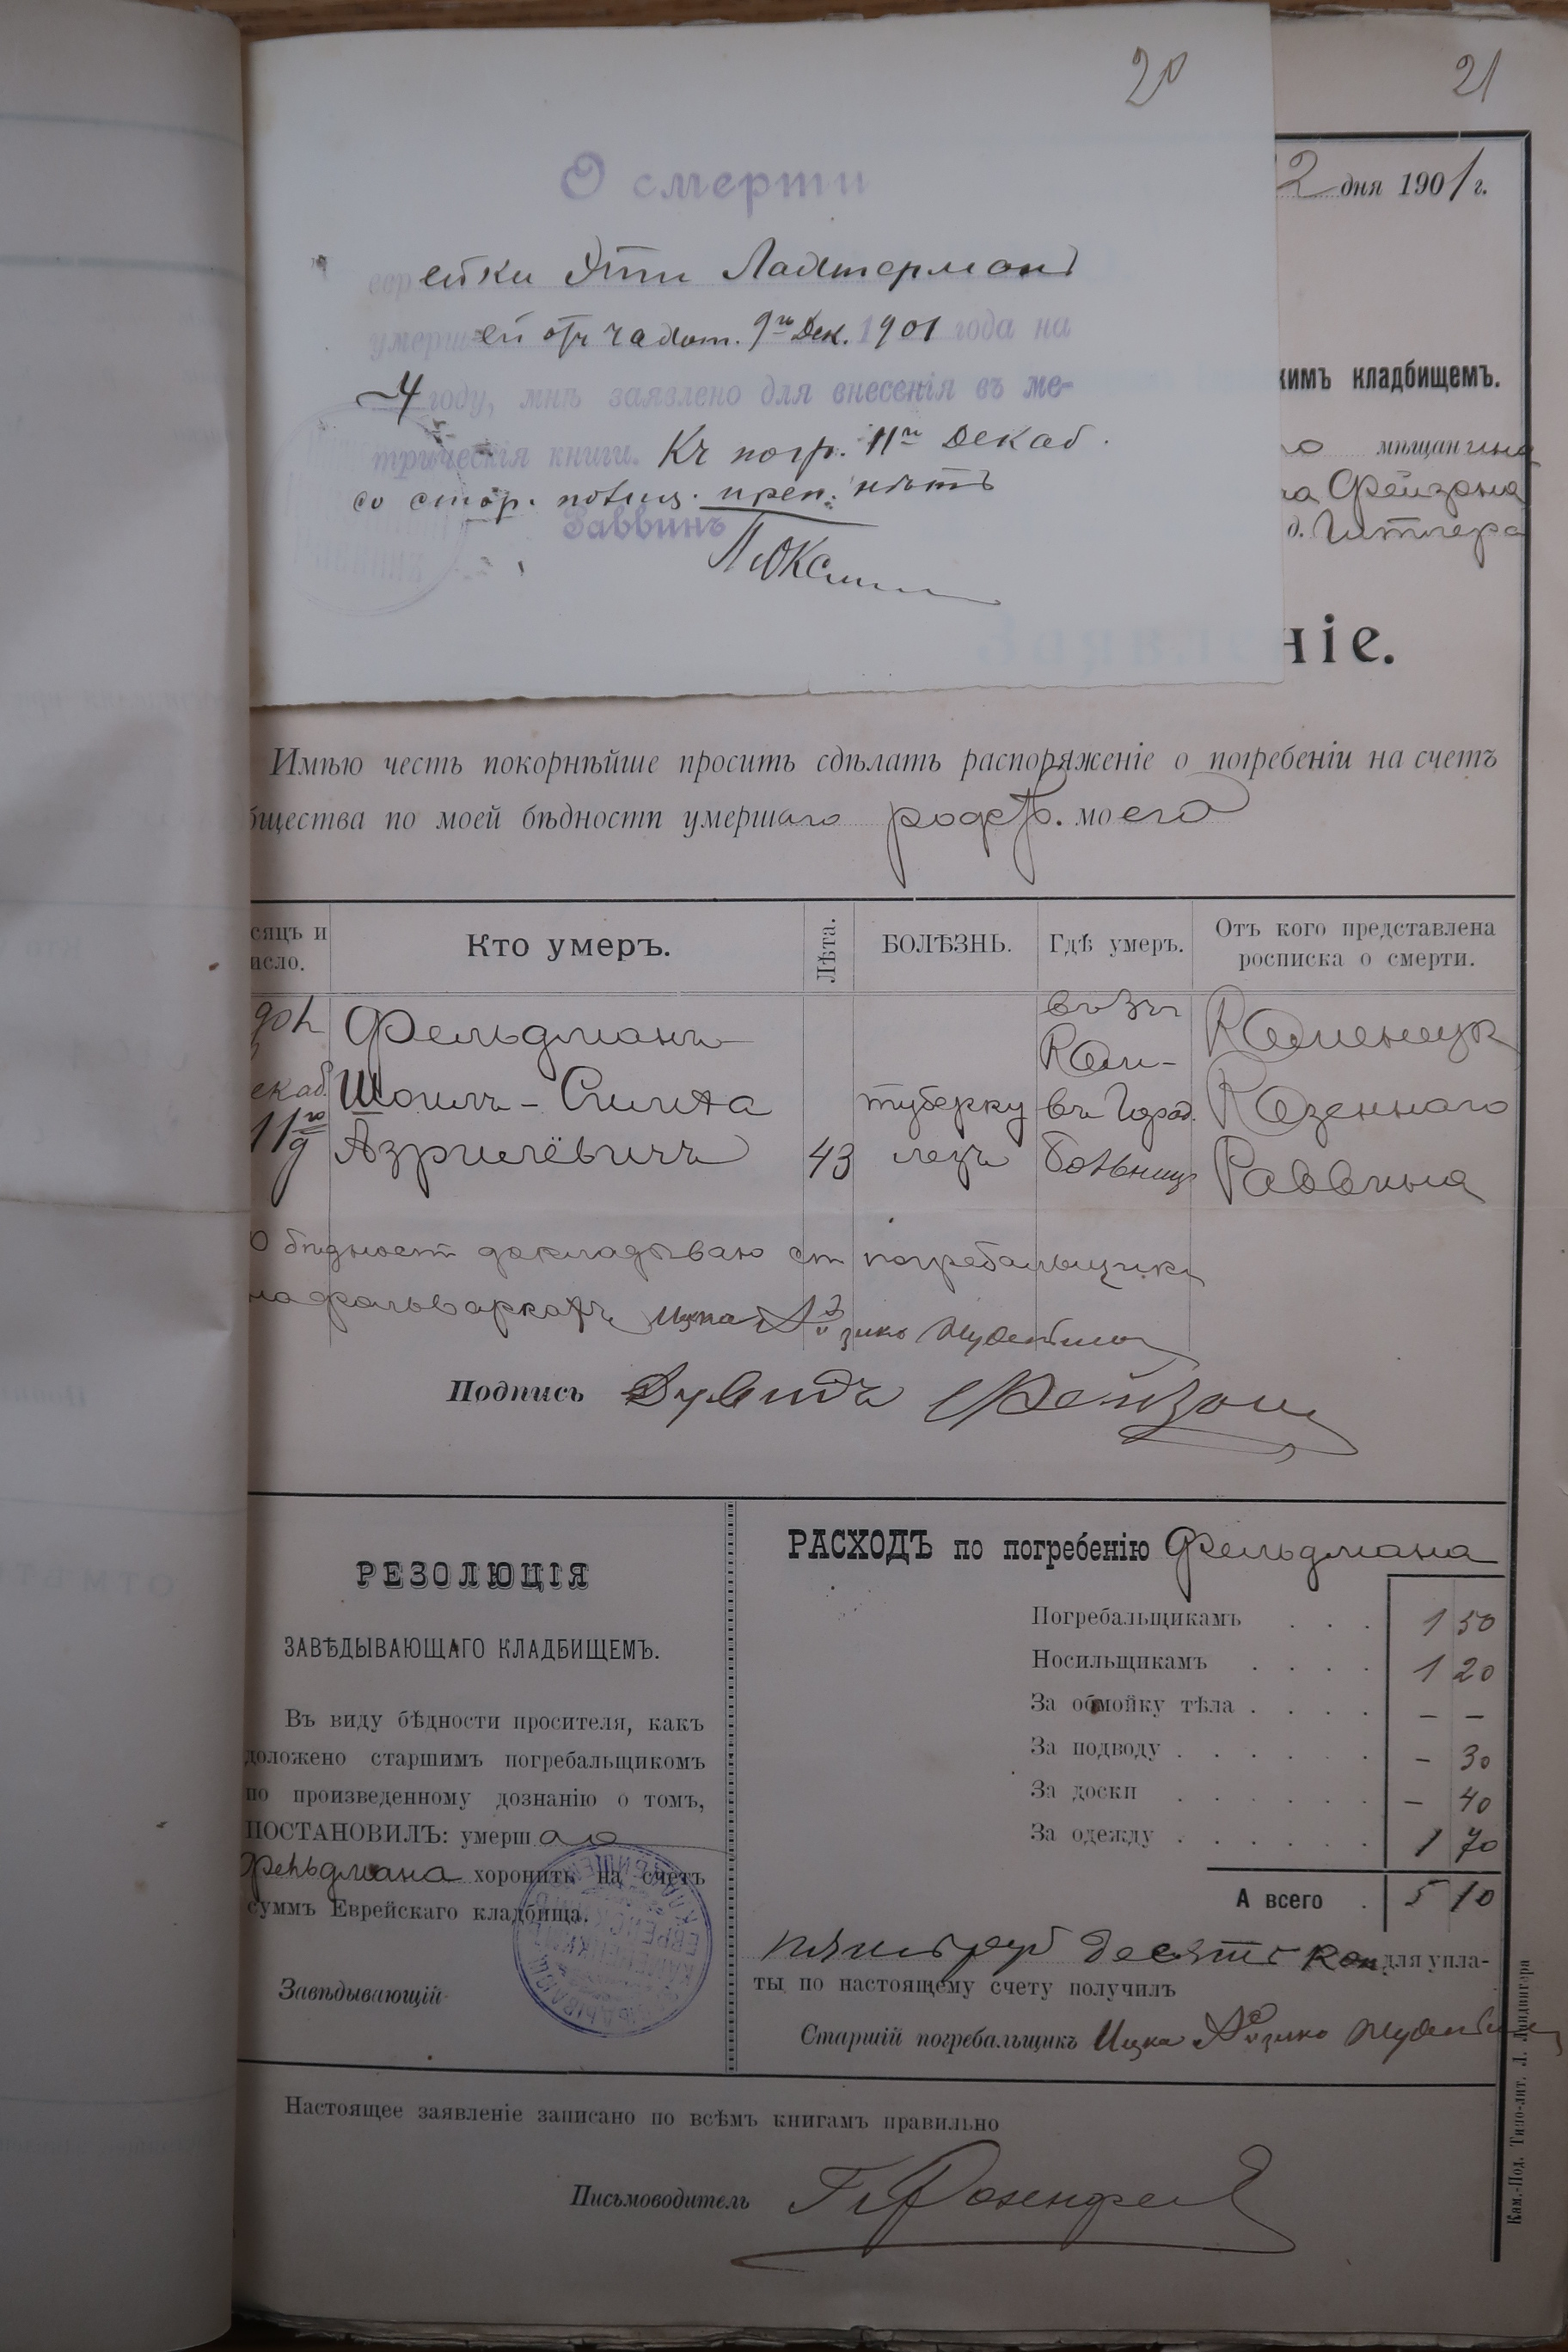 20
21
О смерти
еврейки Эти Лахтерманъ
умершей отъ чахот. 9го Дек. 1901 года на
4 году, мнѣ заявлено для внесенія въ ме-
трическія книги. Къ погр. 11го Декаб.
со стор. полиц. преп. нѣтъ
Раввинъ
2 дня 1901 г.
кимъ кладбищемъ.
го мѣщанина
Фейзона
д. Гитлера
ніе.
Имѣю честь покорнѣйше просить сдѣлать распоряженіе о погребеніи на счетъ
бщества по моей бѣдности умершаго родст. моего
сяцъ и
исло.
Кто умеръ.
Лѣта.
БОЛѢЗНЬ.
Гдѣ умеръ.
Отъ кого представлена
росписка о смерти.
901
екаб.
11го
Фельдманъ
Шоилъ-
Азрилёвичъ
43
туберку
лезъ
Кам-
въ Город.
больниц
Каменецк
Казеннаго
Раввина
О бѣдност докладываю ст погребальщикъ
на фольваркахъ Ицка
Подпись Дувидъ Фейзон
РЕЗОЛЮЦІЯ
ЗАВѢДЫВАЮЩАГО КЛАДБИЩЕМЪ.
Въ виду бѣдности просителя, какъ
доложено старшимъ погребальщикомъ
по произведенному дознанію о томъ,
ПОСТАНОВИЛЪ: умершаго
Фельдмана хоронить на счетъ
суммъ Еврейскаго кладбища.
Завѣдывающій
РАСХОДЪ по погребенію Фельдмана
Погребальщикамъ . . . 1 50
Носильщикамъ . . . . 1 20
За обмойку тѣла . . . . – –
За подводу . . . . . . – 30
За доски . . . . . . – 40
За одежду . . . . . . 1 70
А всего . 5 10
пять руб десять коп. для упла-
ты по настоящему счету получилъ
Старшій погребальщикъ Ицка
Настоящее заявленіе записано по всѣмъ книгамъ правильно
Письмоводитель Розенфел
Кам.-Под. Типо-лит. Л. Ландвигера